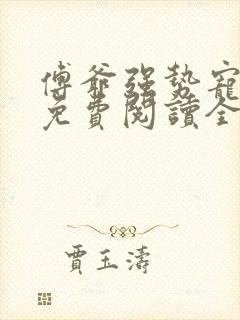 傅爺強勢寵
免費閱讀全
賈玉濤